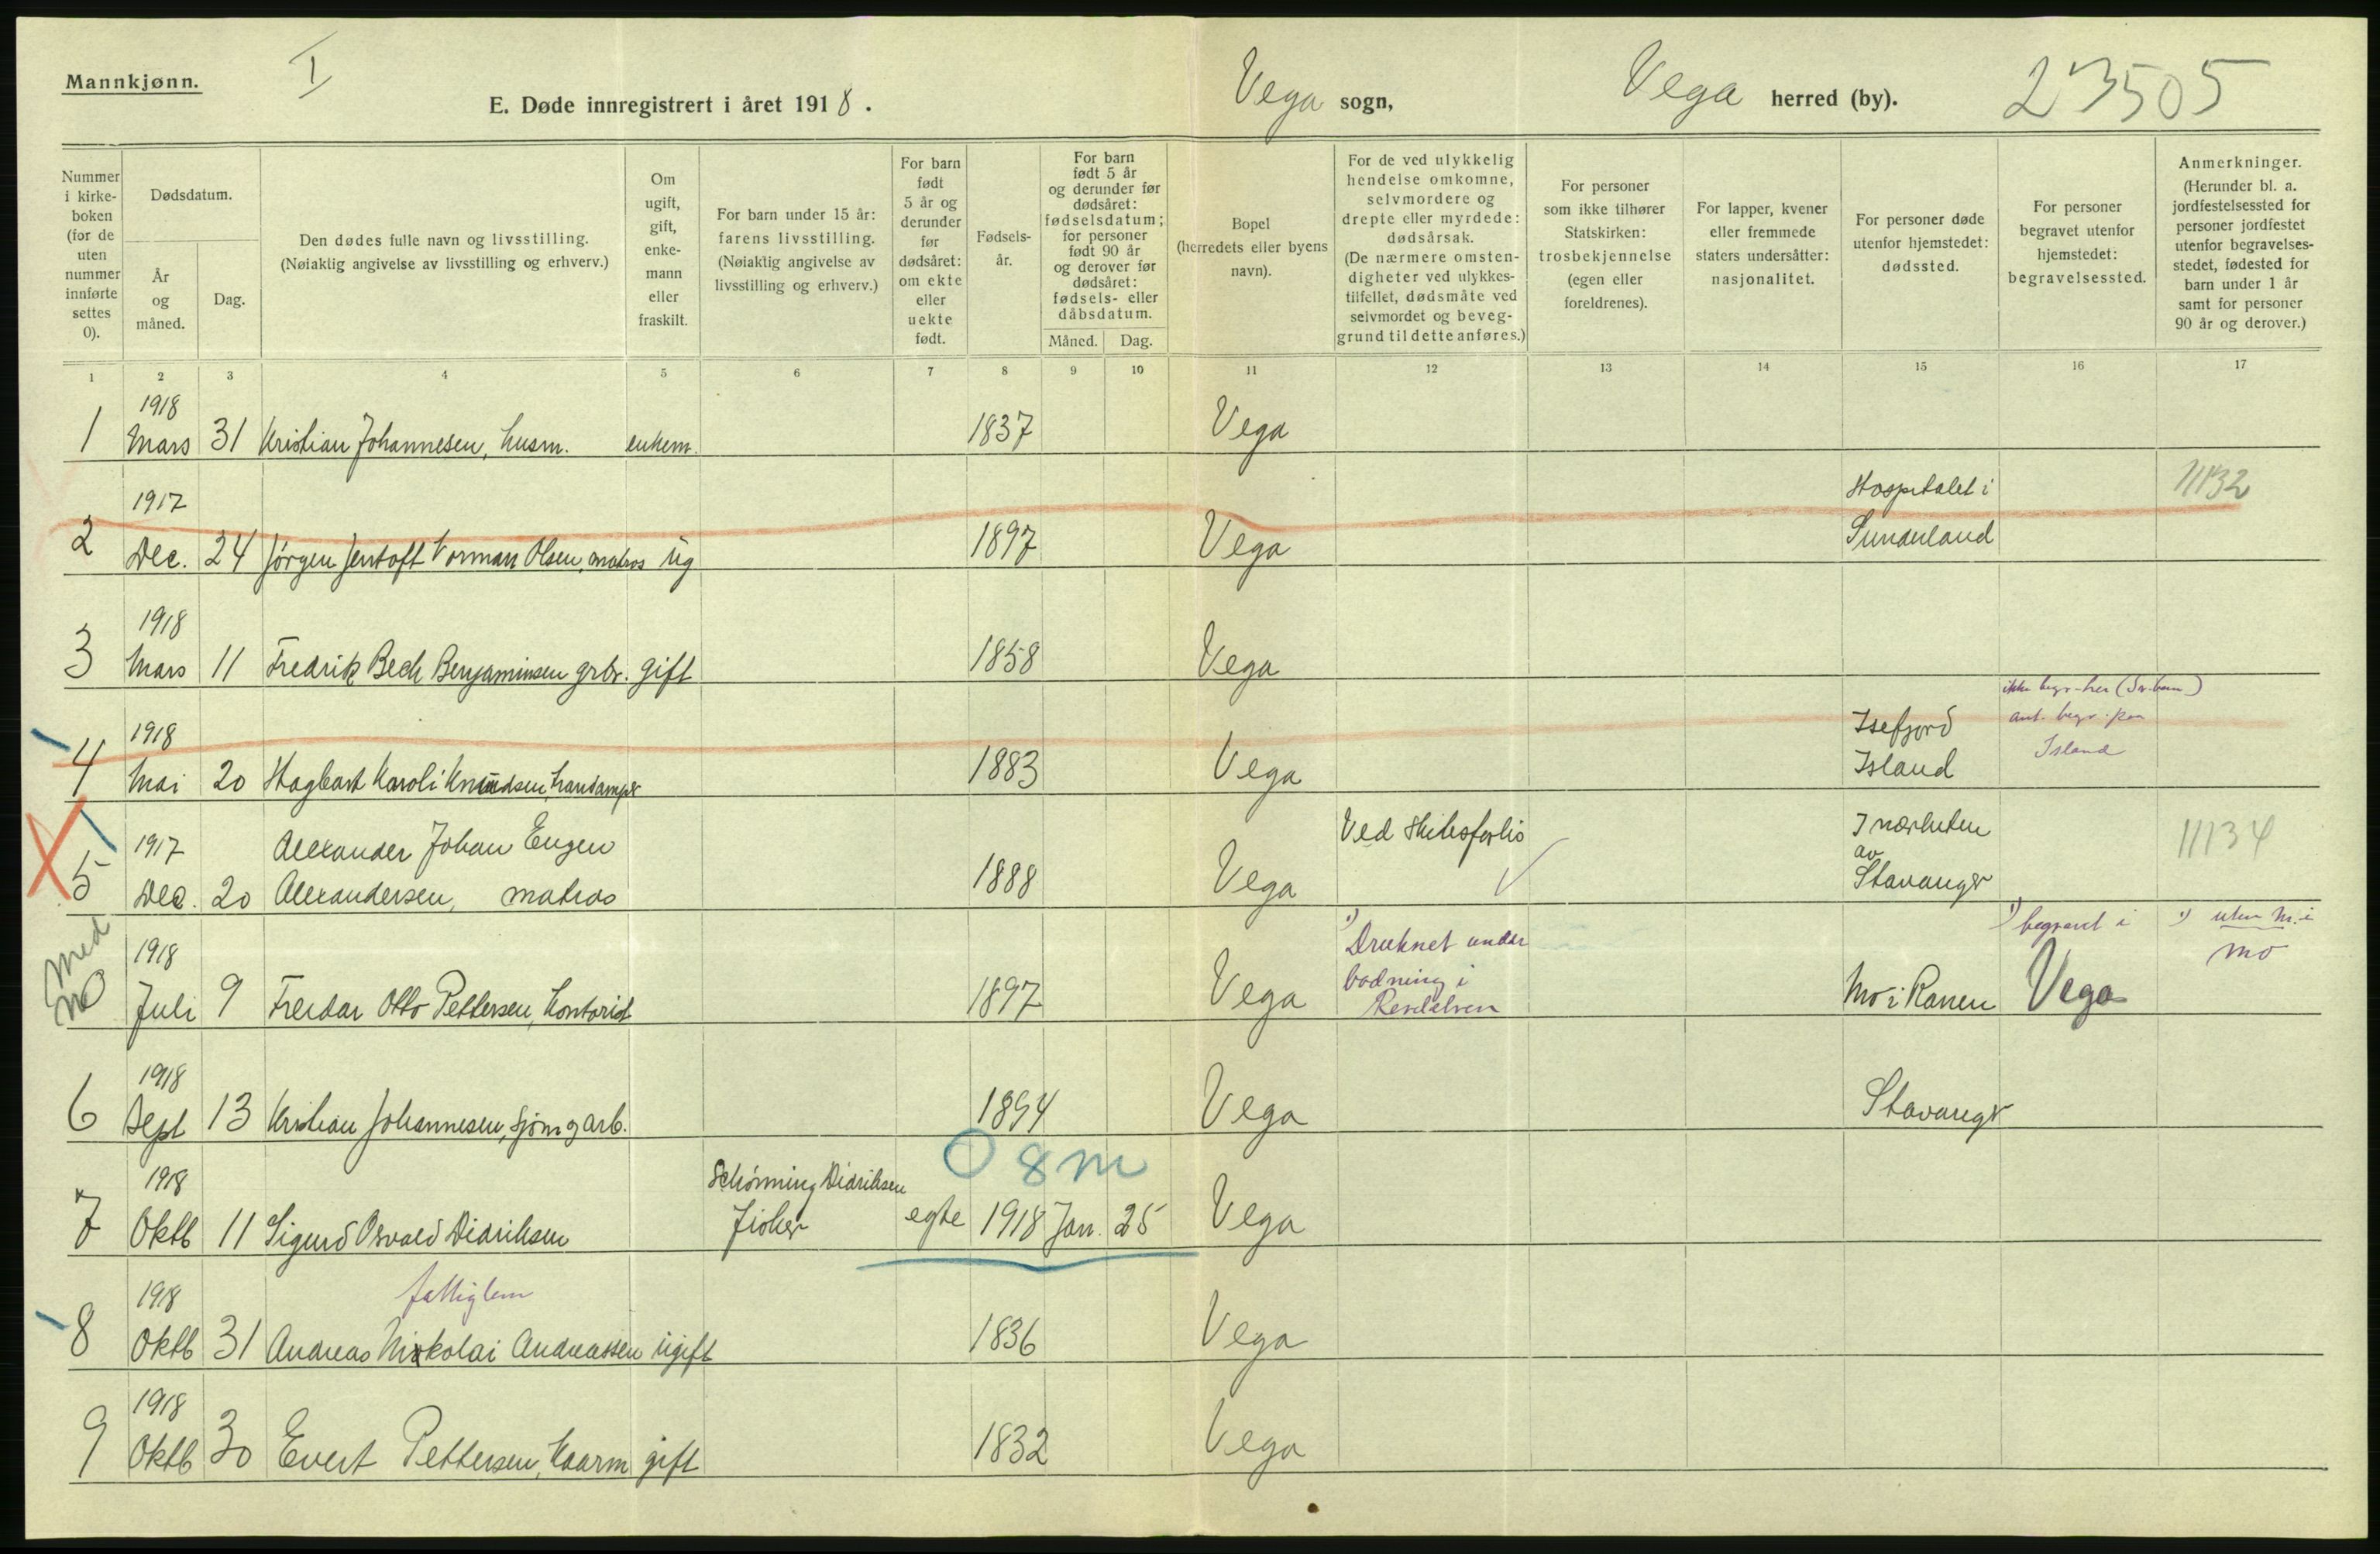 Mannkjønn.
I
E. Døde innregistrert i året 1918.
Vega sogn,
Vega herred (by).
23505
Nummer i kirke- boken (for de uten nummer innførte settes 0).
Dødsdatum.
År og måned.
Dag.
Den dødes fulle navn og livsstilling.
(Nøiaktig angivelse av livsstilling og erhverv.)
Om ugift, gift, enke- mann eller fraskilt.
For barn under 15 år: farens livsstilling. (Nøiaktig angivelse av livsstilling og erhverv.)
For barn født 5 år og derunder før dødsåret: om ekte eller uekte født.
Fødsels- år.
For barn født 5 år og derunder før dødsåret: fødselsdatum; for personer født 90 år og derover før dødsåret: fødsels- eller dåbsdatum.
Måned.
Dag.
Bopel (herredets eller byens navn).
For de ved ulykkelig hendelse omkomne, selvmordere og drepte eller myrdede: dødsårsak. (De nærmere omsten- digheter ved ulykkes- tilfellet, dødsmåte ved selvmordet og beveg- grund til dette anføres.)
For personer som ikke tilhører Statskirken: trosbekjennelse (egen eller foreldrenes).
For lapper, kvener eller fremmede staters undersåtter: nasjonalitet.
For personer døde utenfor hjemstedet: dødssted.
For personer begravet utenfor hjemstedet: begravelsessted.
Anmerkninger. (Herunder bl. a. jordfestelsessted for personer jordfestet utenfor begravelses- stedet, fødested for barn under 1 år samt for personer 90 år og derover.)
1 2 3 4 5 6 7 8 9 10 11 12 13 14 15 16 17
1918
1 Mars 31 Kristian Johannesen, husm. enkem. 1837 Vega
1917 Hospitalet i 11132
2 Dec. 24 Jørgen Jentoft Norman Olsen, matros ug 1897 Vega Sunderland
1918
3 Mars 11 Fredrik Bech Benjaminsen grbr. gift 1858 Vega
ikke begr. her
1918 Isefjord ant. begr. paa
4 Mai 20 Hagbart Karoli Knudsen, 1883 Vega Island Island
1917 Alexander Johan Eugen Ved Skibsforlis I nærheten av 11134
5 Dec. 20 Alexandersen, matros 1888 Vega Stavanger
Med
1918 1) Druknet under 1) begravet i 1) uten M. i
badning i Mo
0 Juli 9 Freidar Otto Pettersen, Kontorist 1897 Vega Revelelven Mo i Ranen Vega
1918
6 Sept 13 Kristian Johannesen, sjømg arb. 1894 Vega Stavanger
0 8 m
1918 Schønning Didriksen
7 Oktb 11 Sigurd Osvald Didriksen fisker egte 1918 Jan. 25 Vega
1918 fattiglem
8 Oktb 31 Andreas Nikolai Andreassen ugift 1836 Vega
1918
9 Oktb 30 Evert Pettersen, kaarm gift 1832 Vega